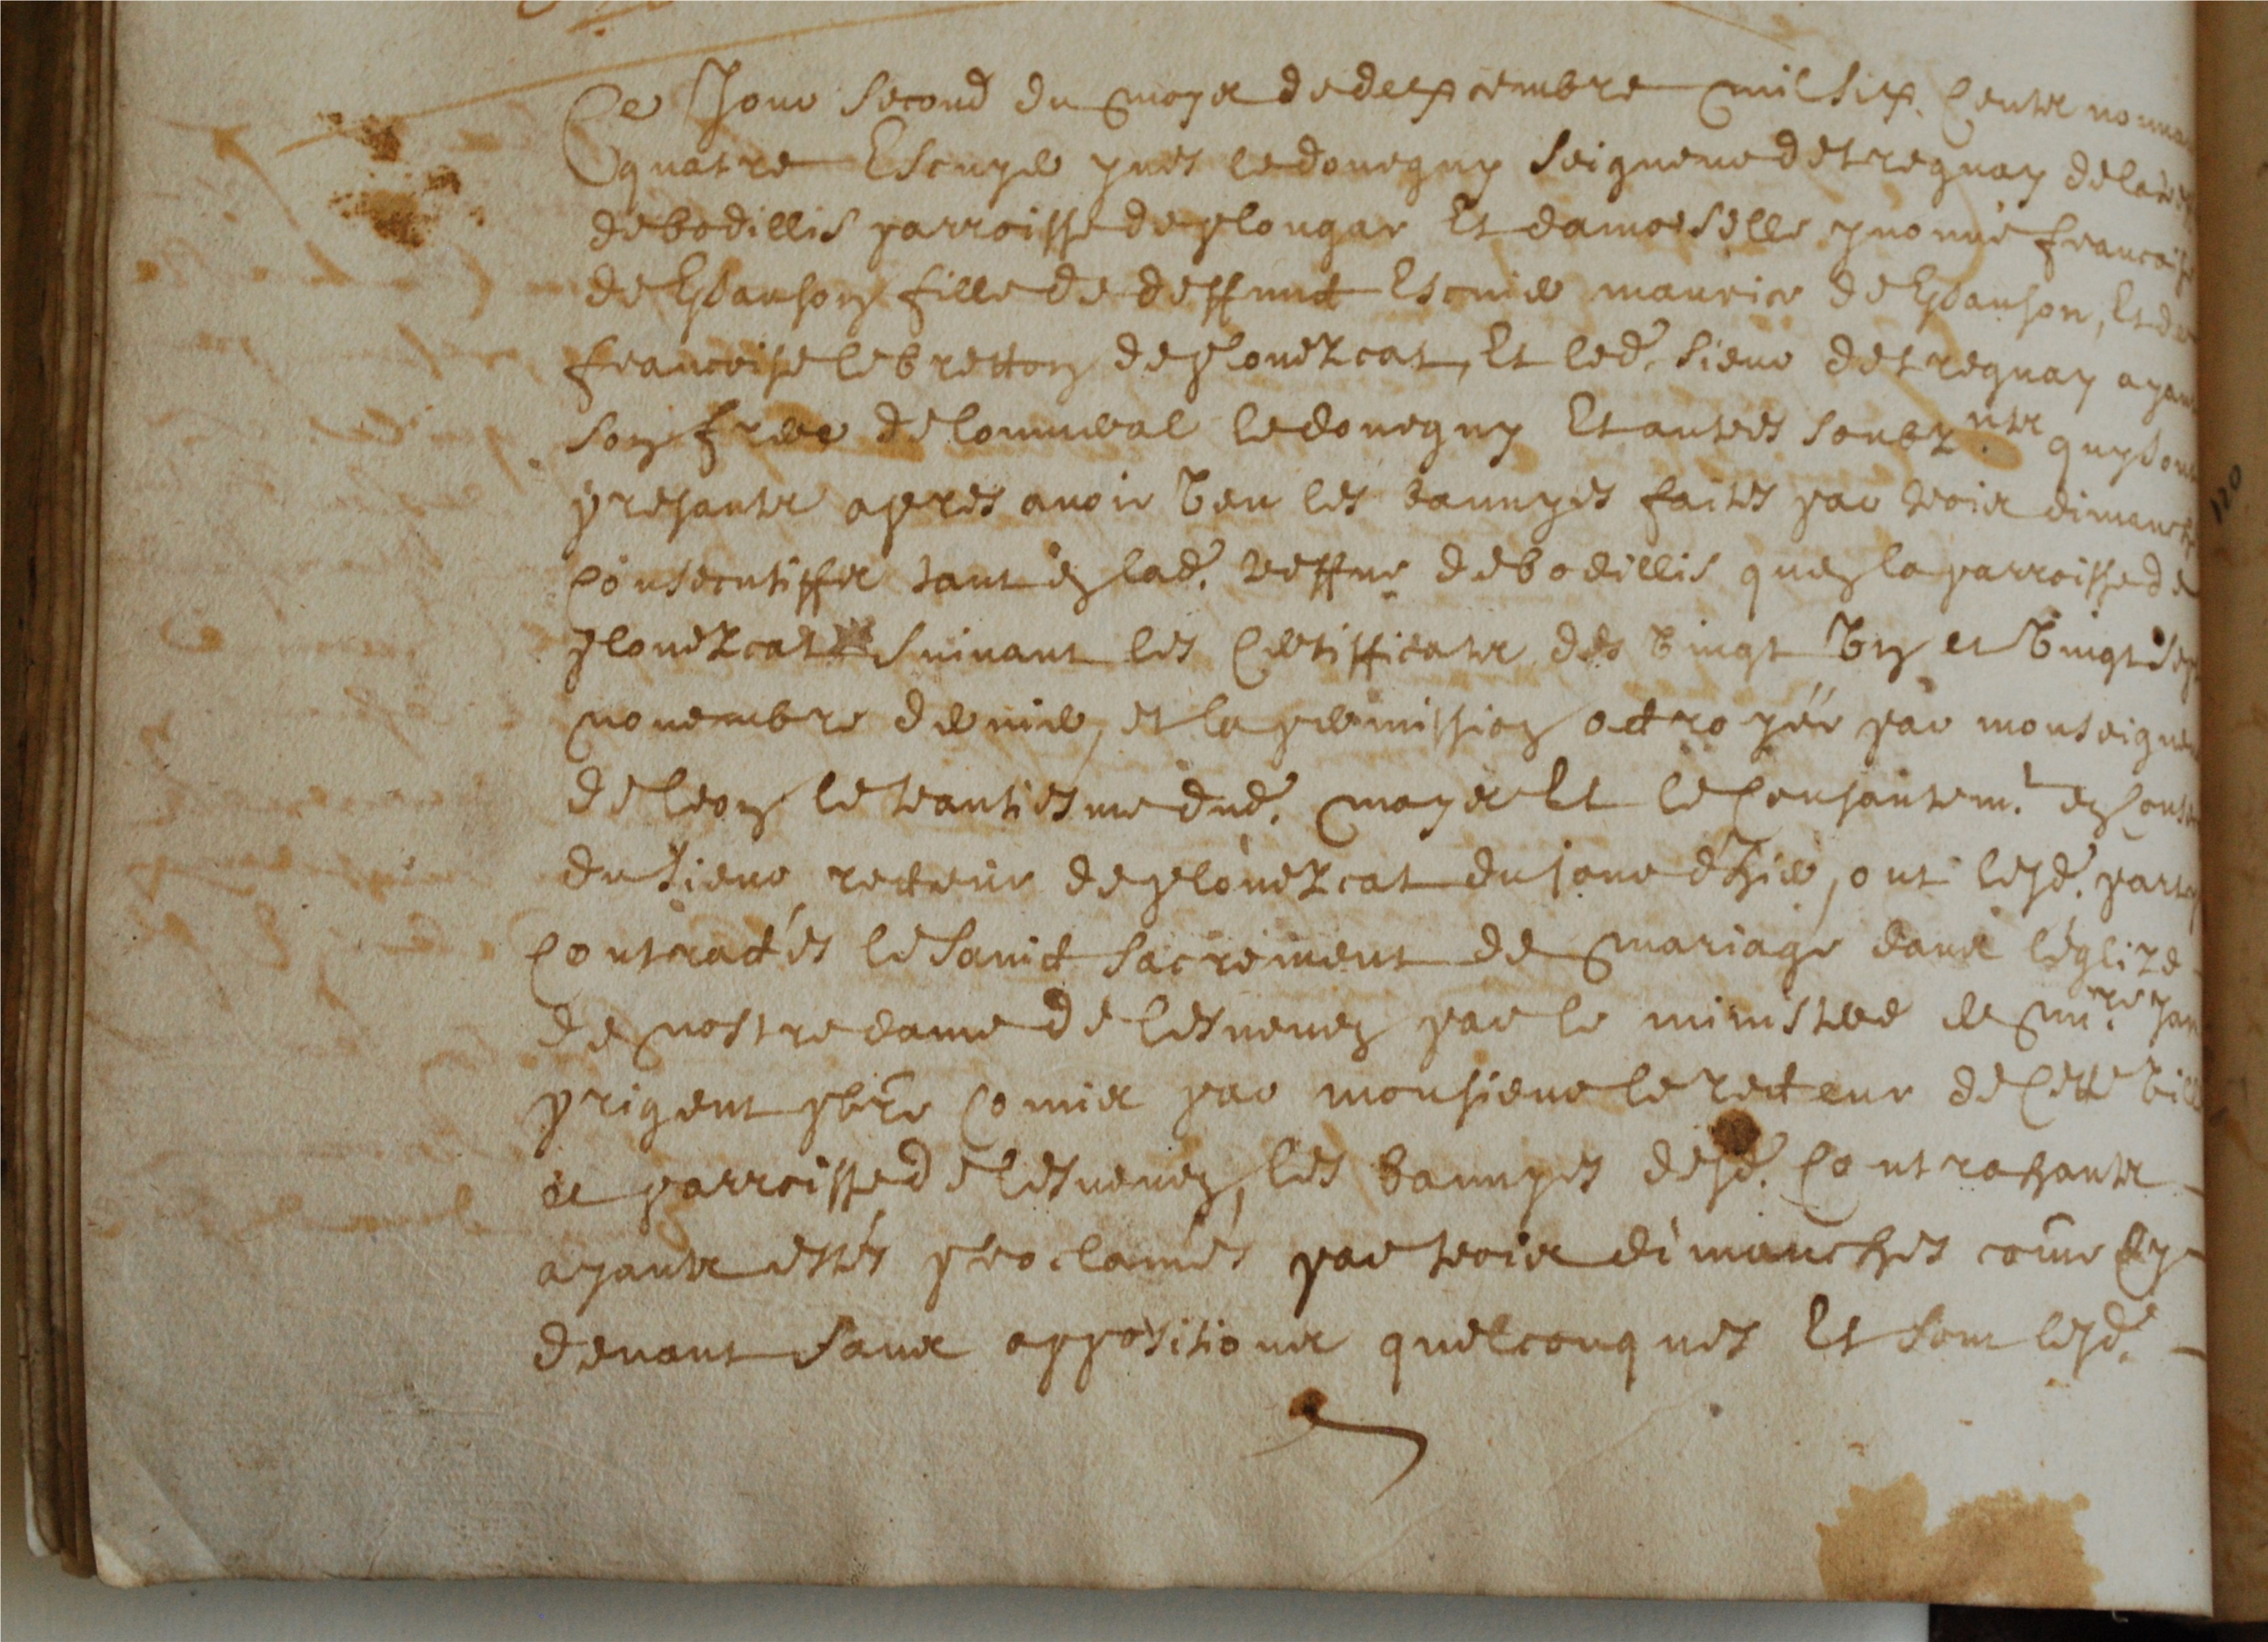 Ce Jour second du moys de dexcembre mil six cents nonna
quatre Escuyer yves le dourguy seigneur de treguay de la tre
de bodillis parroisse de plougar Et damoiselle yvonne francois
de Kersauson fille de deffunct Escuier maurice de Kersauson, Et de
francoise le bretton de plouezcat, Et led. sieur de treguay ayan
son frere de lommeval le dourguy Et autres soubz nts quy sont
presants apres avoir veu les bannyes faites par trois dimanch
consecutiffs tant en lad. treffve de bodillis qu en la parroisse de
plouezcat suivant les certifficats des vingt un et vingt sep
novembre dernier, et la permission octroyée par monseigneu
de leon le trantiesme dud. moys Et le consantem.t
du sieur recteur de plouezcat du jour d'hier, ont lesd. partys
contractés le sainct sacrement de mariage dans léglize
de nostre dame de lesneven par le ministere de m.re Jan
prigent pbre comis par monsieur le recteur de cette vill
et parroisse de lesneven, les bannyes desd. contrahants
ayants estés proclamés par trois dimanches come cy
devant sans oppositions quelconques Et sont lesd.
120